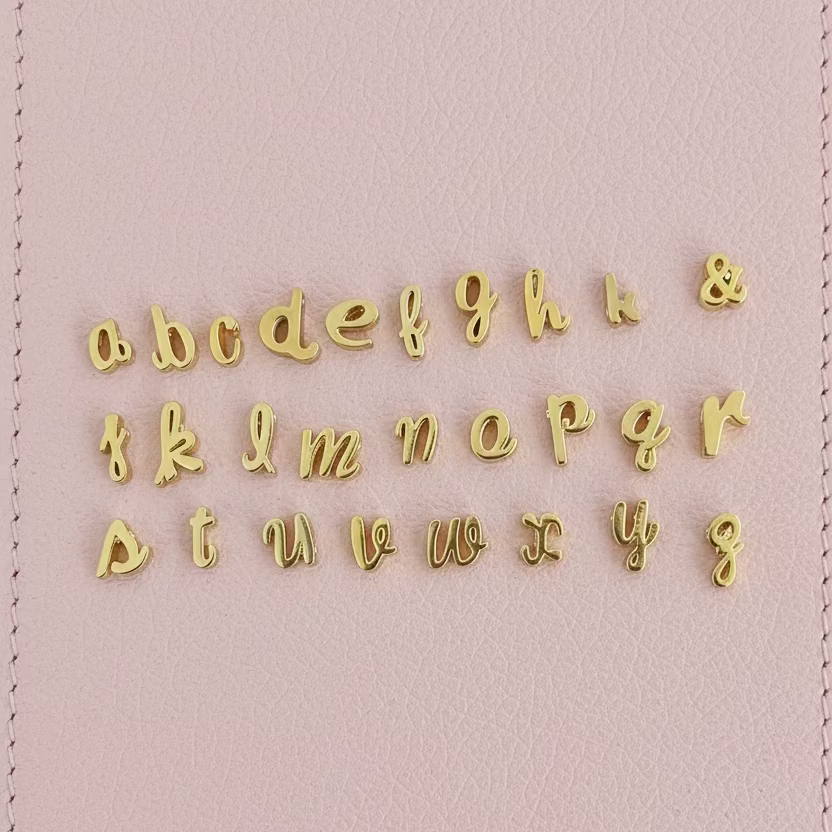 a b c d e f g h k &
j k l m n o p q r
s t u v w x y z